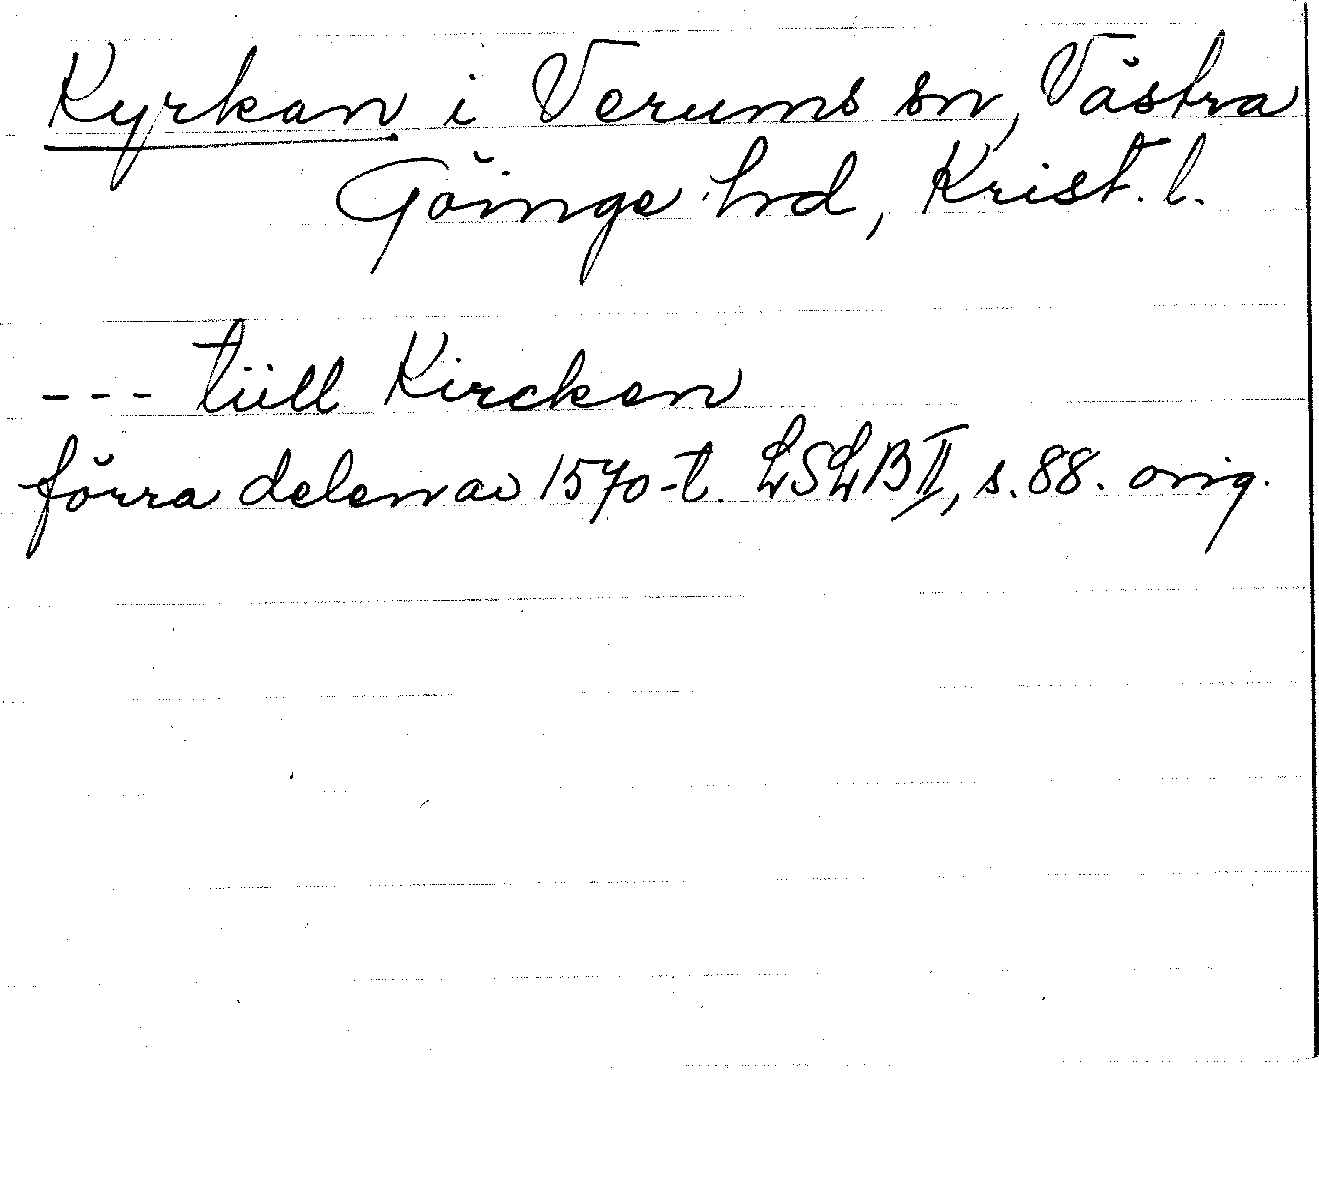 Kyrkan i Verums sn, Västra
Göinge hrd, Krist. l.
--- tiill Kircken
förra delen av 1570-t. LSLB II, s. 88. orig.